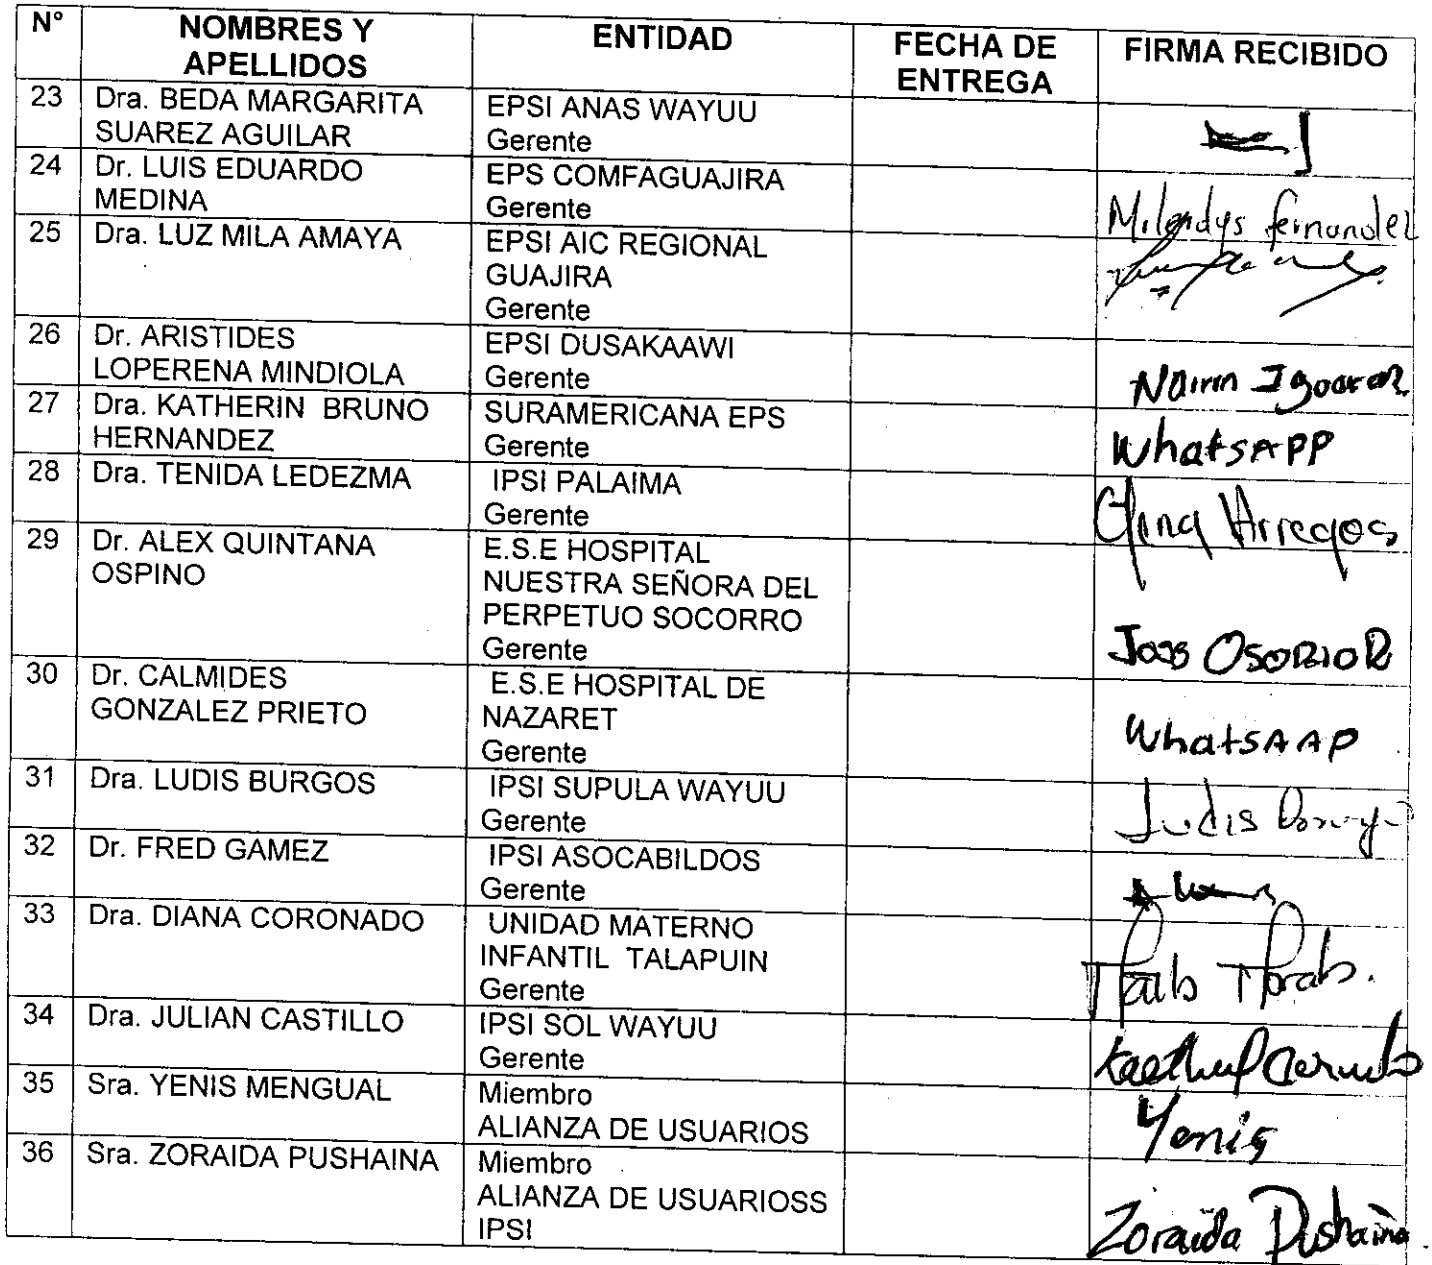 N° NOMBRES Y APELLIDOS ENTIDAD FECHA DE ENTREGA FIRMA RECIBIDO
23 Dra. BEDA MARGARITA EPSI ANAS WAYUU
SUAREZ AGUILAR Gerente
24 Dr. LUIS EDUARDO EPS COMFAGUAJIRA
MEDINA Gerente Milendys fernandez
25 Dra. LUZ MILA AMAYA EPSI AIC REGIONAL
GUAJIRA
Gerente
26 Dr. ARISTIDES EPSI DUSAKAAWI
LOPERENA MINDIOLA Gerente
27 Dra. KATHERIN BRUNO SURAMERICANA EPS
HERNANDEZ Gerente WhatsAPP
28 Dra. TENIDA LEDEZMA IPSI PALAIMA
Gerente
29 Dr. ALEX QUINTANA E.S.E HOSPITAL
OSPINO NUESTRA SEÑORA DEL
PERPETUO SOCORRO
Gerente OSORIO R
30 Dr. CALMIDES E.S.E HOSPITAL DE
GONZALEZ PRIETO NAZARET
Gerente WhatsAAP
31 Dra. LUDIS BURGOS IPSI SUPULA WAYUU
Gerente Ludis
32 Dr. FRED GAMEZ IPSI ASOCABILDOS
Gerente
33 Dra. DIANA CORONADO UNIDAD MATERNO
INFANTIL TALAPUIN
Gerente
34 Dra. JULIAN CASTILLO IPSI SOL WAYUU
Gerente
35 Sra. YENIS MENGUAL Miembro
ALIANZA DE USUARIOS Yenis
36 Sra. ZORAIDA PUSHAINA Miembro
ALIANZA DE USUARIOSS
IPSI Zoraida Pushaina